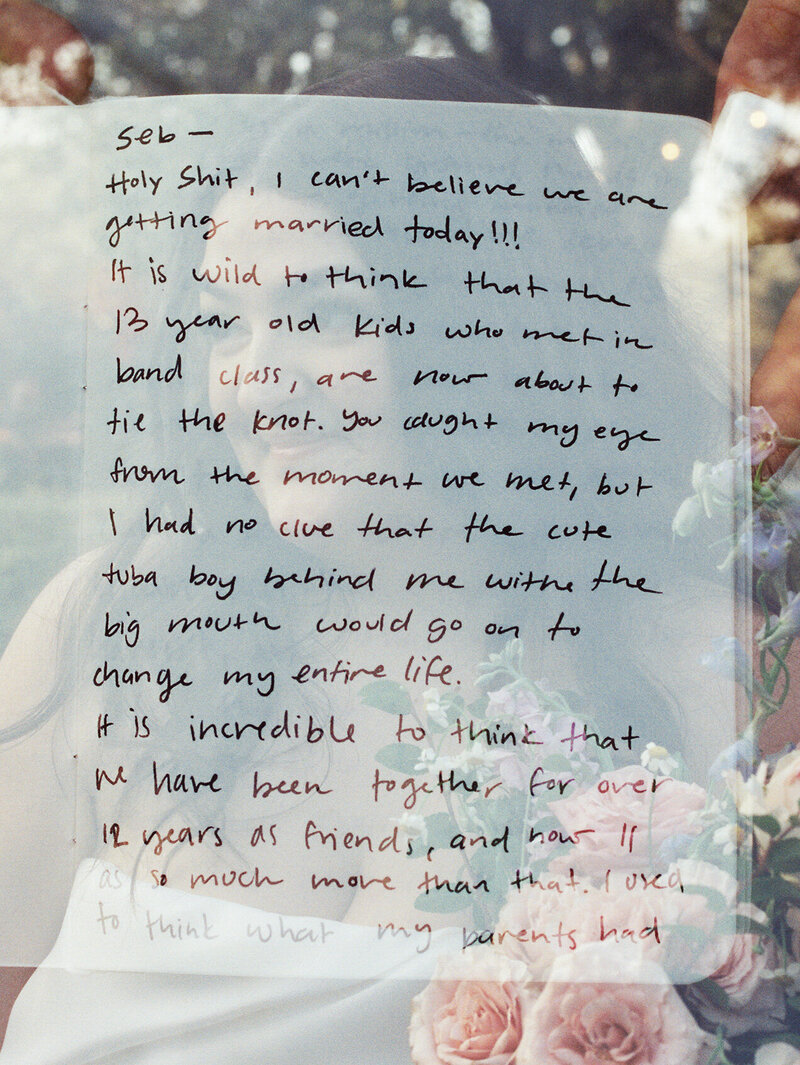 Seb —
Holy Shit, I can't believe we are
getting married today!!!
It is wild to think that the
13 year old kids who met in
band class, are now about to
tie the knot. You caught my eye
from the moment we met, but
I had no clue that the cute
tuba boy behind me with the
big mouth would go on to
change my entire life.
It is incredible to think that
we have been together for over
12 years as friends, and now 11
as so much more than that. I used
to think what my parents had